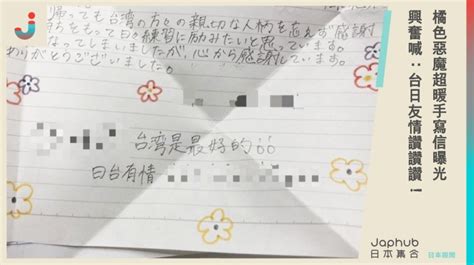 帰っても台湾の方々の親切な人柄を忘れず感謝
をもって日々練習に励みたいと思っています。
なってしまいましたが、心から感謝しています。
ありがとうございました。
台湾是最好的
日台有情
橘色惡魔超暖手寫信曝光
興奮喊：台日友情讚讚讚！
Japhub
日本集合
日本新聞